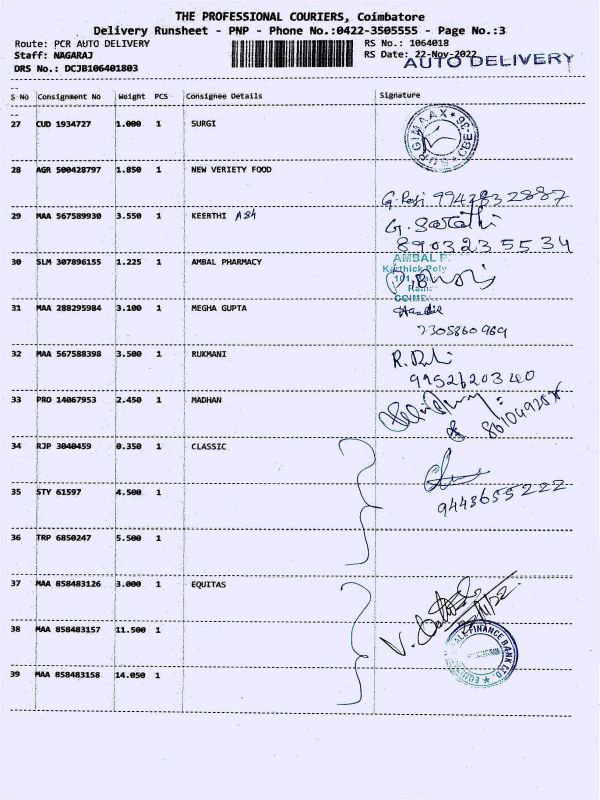 THE PROFESSIONAL COURIERS, Coimbatore
Delivery Runsheet - PNP - Phone No.:0422-3505555 - Page No.:3
Route: PCR AUTO DELIVERY RS No.: 1064018
Staff: NAGARAJ RS Date: 22-Nov-2022
AUTO DELIVERY
DRS No.: DCJB106401803
S No Consignment No Weight PCS Consignee Details Signature
27 CUD 1934727 1.000 1 SURGI
SURGIMAAX CBE-36
28 AGR 500428797 1.850 1 NEW VERIETY FOOD
29 MAA 567589930 3.550 1 KEERTHI
8903235534
30 SLM 307896155 1.225 1 AMBAL PHARMACY
AMBAL P
Karthick Poly
31 MAA 288295984 3.100 1 MEGHA GUPTA
7305860969
32 MAA 567588398 3.500 1 RUKMANI
33 PRO 14067953 2.450 1 MADHAN
34 RJP 3040459 0.350 1 CLASSIC
35 STY 61597 4.500 1
9448655222
36 TRP 6850247 5.500 1
37 MAA 858483126 3.000 1 EQUITAS
38 MAA 858483157 11.500 1
39 MAA 858483158 14.050 1